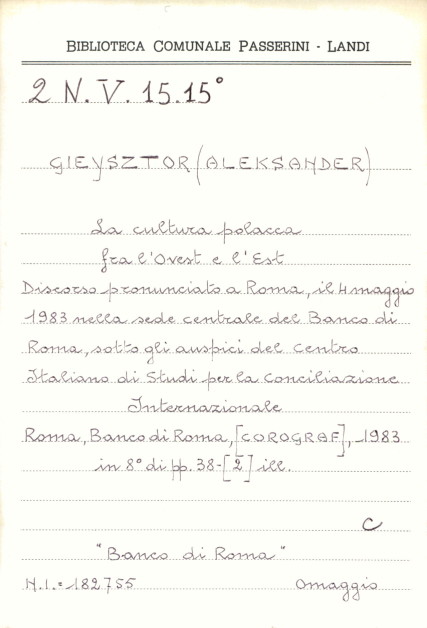 BIBLIOTECA COMUNALE PASSERINI - LANDI
2 N. V. 15.15°
GIEYSZTOR (ALEKSANDER)
La cultura polacca
fra l'Ovest e l'Est
Discorso pronunciato a Roma, il 4 maggio
1983 nella sede centrale del Banco di
Roma, sotto gli auspici del Centro
Italiano di Studi per la Conciliazione
Internazionale
Roma, Banco di Roma, [COROGRAF], 1983
in 8° di pp. 38-[2] ill.
C
"Banco di Roma"
N.I.= 182755 Omaggio